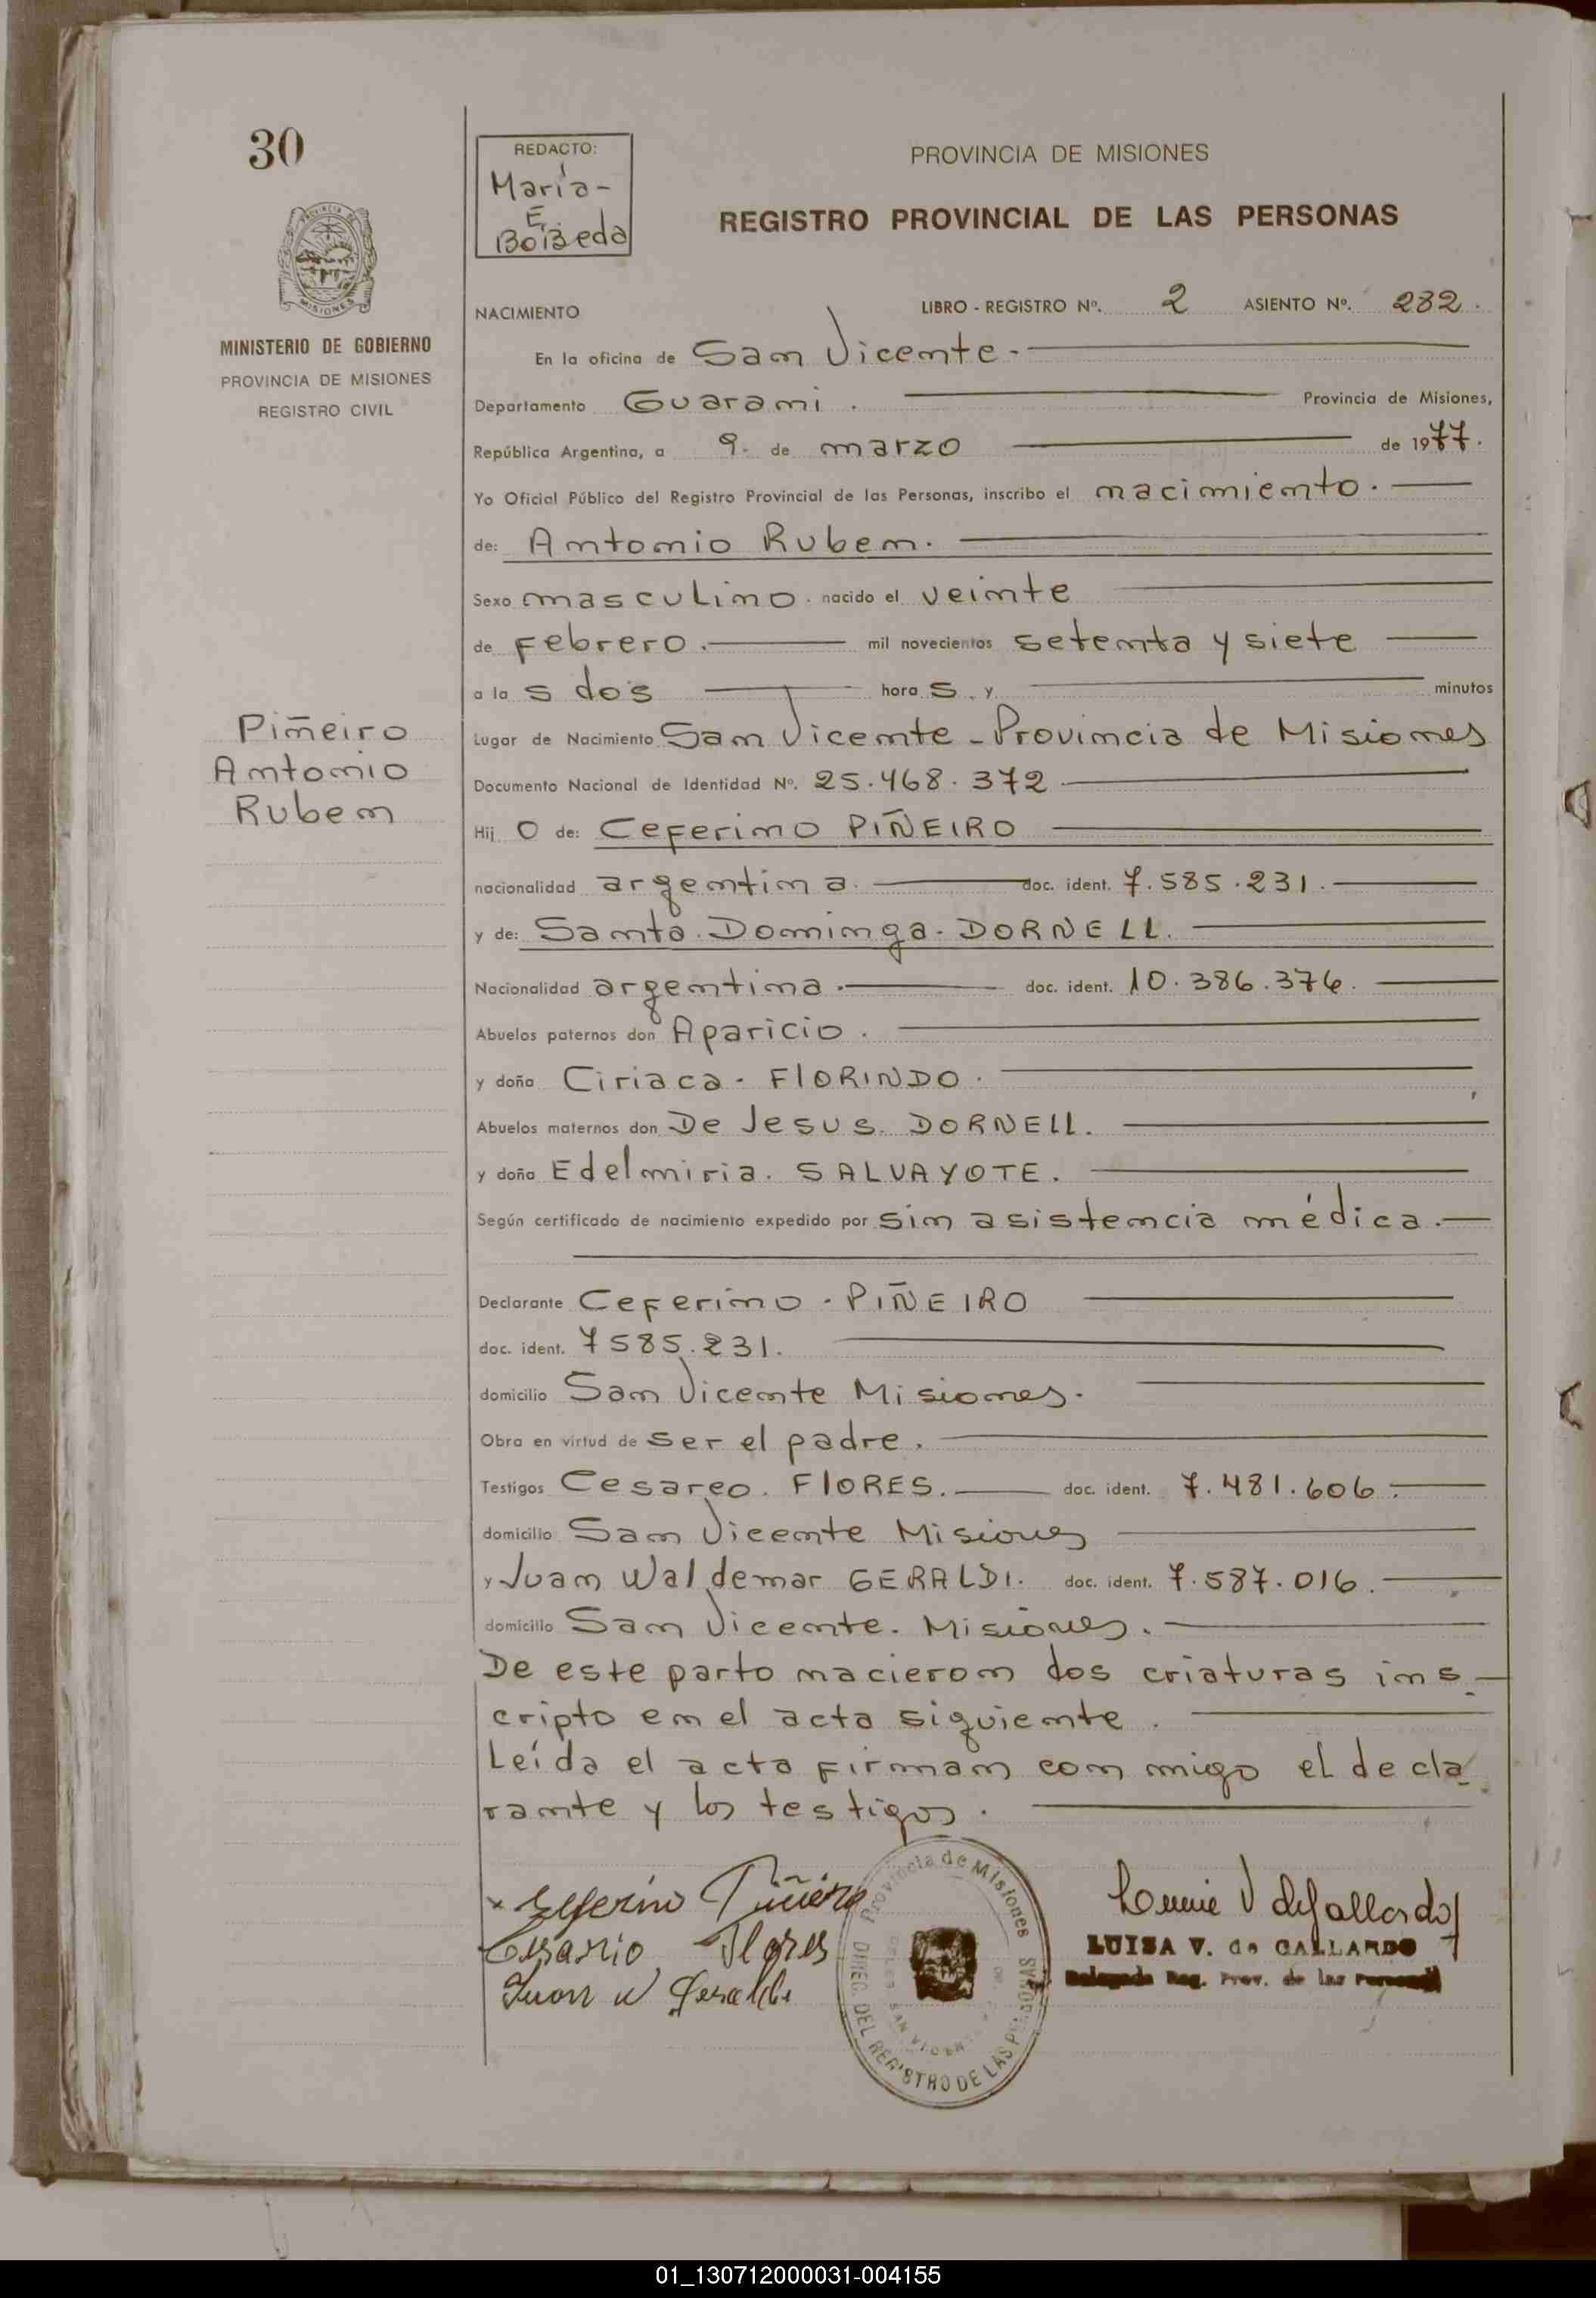 30
REDACTO:
María-
E.
BoBeda
PROVINCIA DE MISIONES
REGISTRO PROVINCIAL DE LAS PERSONAS
MINISTERIO DE GOBIERNO
PROVINCIA DE MISIONES
REGISTRO CIVIL
NACIMIENTO LIBRO - REGISTRO Nº. 2 ASIENTO Nº. 282.
En la oficina de San Vicente.-
Departamento Guarani. Provincia de Misiones,
República Argentina, a 9. de marzo de 1977.
Yo Oficial Público del Registro Provincial de las Personas, inscribo el nacimiento.
de: Antonio Ruben.
Sexo masculino. nacido el veinte
de Febrero. mil novecientos setenta y siete
a la s dos hora s y minutos
Piñeiro
Antonio
Ruben
Lugar de Nacimiento San Vicente - Provincia de Misiones
Documento Nacional de Identidad Nº. 25.468.372
Hij o de: Ceferino PIÑEIRO
nacionalidad argentina. doc. ident. 7.585.231.
y de: Santa. Dominga. DORNELL.
Nacionalidad argentina. doc. ident. 10.386.376.
Abuelos paternos don Aparicio.
y doña Ciriaca - FlORINDO.
Abuelos maternos don De Jesus. DORNEll.
y doña Edelmiria. SALVAYOTE.
Según certificado de nacimiento expedido por sin asistencia médica.
Declarante Ceferino - PIÑEIRO
doc. ident. 7585.231.
domicilio San Vicente Misiones.
Obra en virtud de ser el padre.
Testigos Cesareo. FlORES. doc. ident. 7.481.606.
domicilio San Vicente Misiones
y Juan Waldemar GERALDI. doc. ident. 7.587.016.
domicilio San Vicente. Misiones.
De este parto nacieron dos criaturas ins-
cripto en el acta siguiente.
Leída el acta firman con migo el decla-
rante y los testigos.
Zeferino Piñiero
Cesario Flores
Juan W Geraldi
Provincia de Misiones
DIREC. DEL REGISTRO DE LAS PERSONAS
SAN VICENTE
V de Gallardo
LUISA V. de GALLARDO
Delegada Reg. Prov. de las Personas
01_130712000031-004155